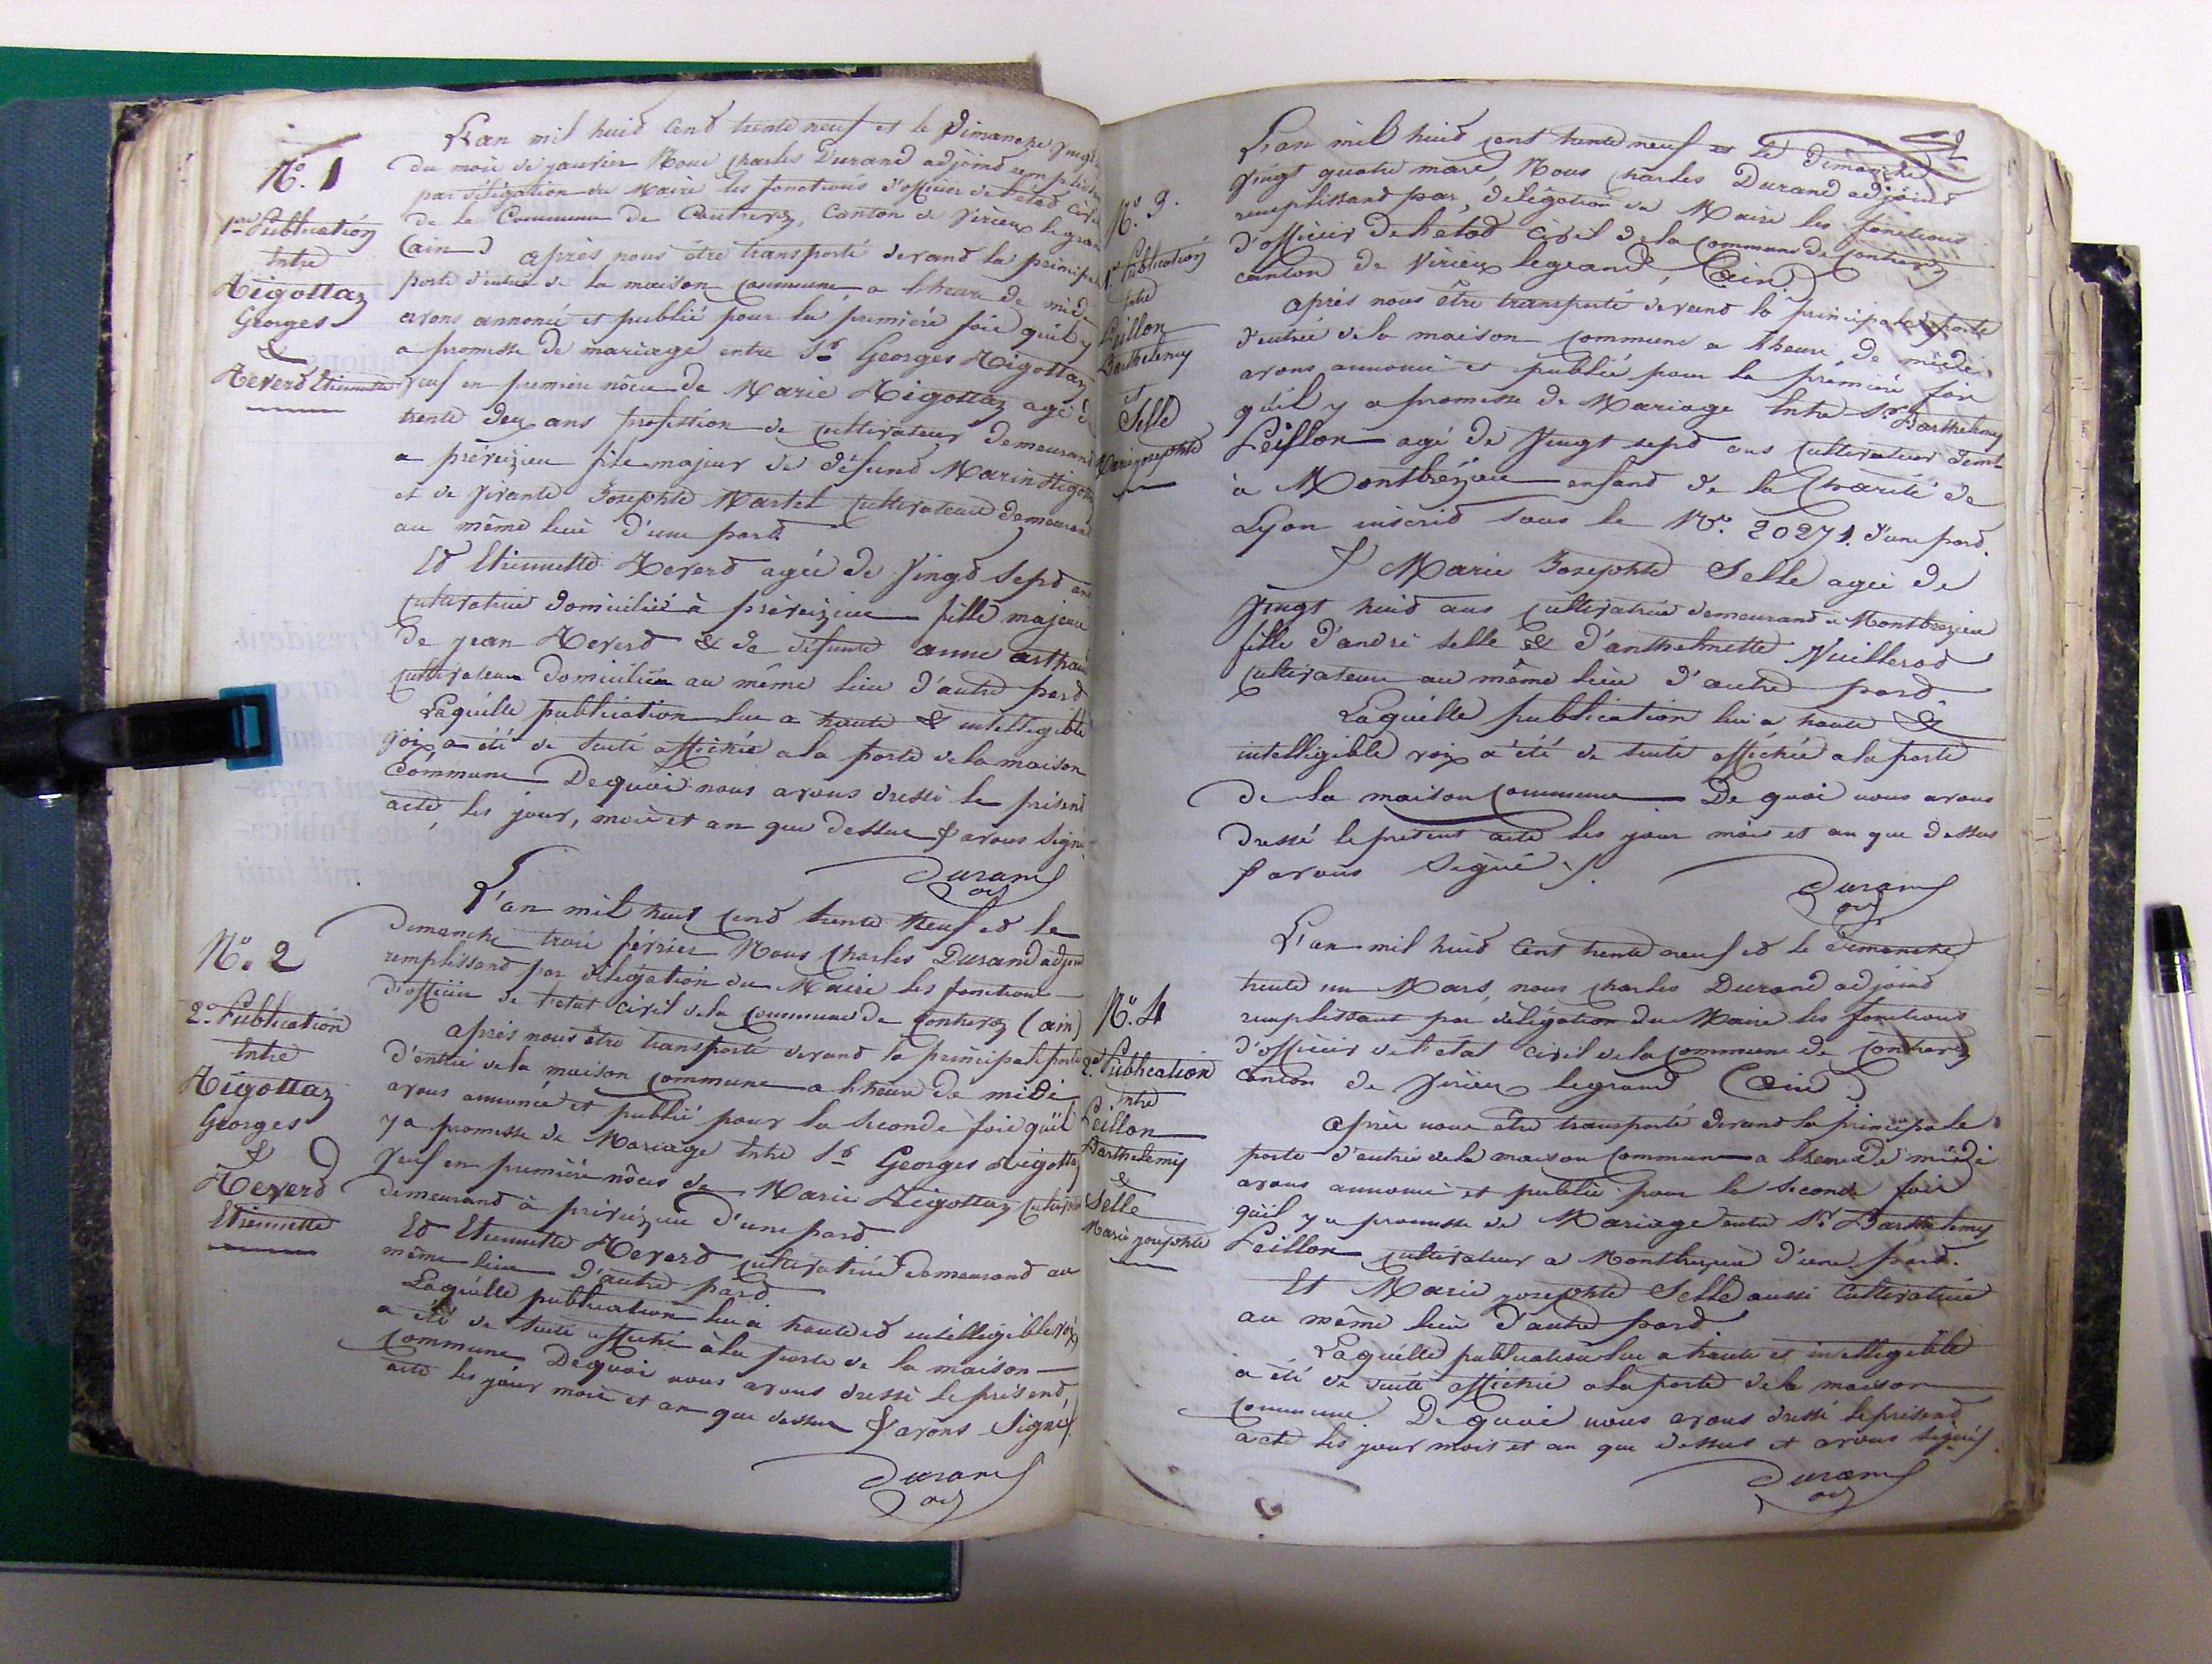 N.º 1
1ere Publication
Entre
Rigottaz
Georges
&
Reverd Etiennette
L'an mil huid cend trente neuf et le Dimanche vingt
du mois de janvier Nous Charles Durand adjoind remplissan
par délégation du Maire les fonctions d'officier de l'etad civil
de la Commune de Contrevoz, Canton de Virieux le gran
(ain) après nous être transporté devand la principale
porte d'entrée de la maison commune a l'heure de midi
avons annoncé et publié pour la première fois quil y
a promesse de mariage entre Sr. Georges Rigottaz
veuf en première nôces de Marie Rigottaz agé de
trente deux ans profession de cultivateur demeurand
a préveizieu fils majeur de défund Marin Rigottaz
et de vivante Josephte Martel cultivateurs demeurand
au même lieu d'une pard
Ed Etiennette Reverd agée de vingd sepd ans
cultivatrice domiciliée à préveizieu fille majeure
de jean Reverd & de défunte anne arthaud
cultivateurs domiciliés au même lieu d'autre pard
Laquélle publication lue a haute & intelligible
voix a été de suité affichée a la porte de la maison
commune De quoi nous avons dressé le présend
acte, les jour, mois et an que dessus & avons signé
Durand
adj
N.º 2
2e Publication
Entre
Rigottaz
Georges
&
Reverd
Etiennette
L'an mil huid cend trente Neuf ed le
Dimanche trois février Nous Charles Durand adjoind
remplissand par délégation du Maire les fonctions
d'officier de l'etat civil de la commune de Contrevoz (ain)
après nous être transporté devand la principale porte
d'entrée de la maison commune a l'heure de midi
avons annoncé et publié pour la seconde fois quil
y a promesse de Mariage entre Sr. Georges Rigottaz
veuf en première nôces de Marie Rigottaz
demeurand à préveizieu d'une pard
Ed Etiennette Reverd cultivatrice demeurand au
même lieu d'autre pard
Laquélle publication lue a haute ed intélligible voix
a été de suite affiché à la porte de la maison
commune De quoi nous avons dressé le présend
acte les jour mois et an que dessus & avons signé
Durand
adj
N.º 3.
1ere Publication
Entre
Feillon
Barthelemy
et
Selle
Marie josephte
L'an mil huid cent trente neuf et le dimanche
vingt quatre mars, Nous Charles Durand adjoind
remplissand par, délégation du Maire les fonctions
d'officier de l'etad civil de la commune de Contrevoz
canton de Virieux legrand (ain)
après nous être transporté devand la principale porte
d'entrée de la maison commune a l'heure de midi
avons annoncé et publié pour la première fois
qu'il y a promesse de Mariage Entre Sr. Barthelemy
Feillon agé de vingt sepd ans cultivateur demt
à Montbrezieu enfand de la Charité de
Lyon inscrid sous le N.º 20271. d'une pard.
& Marie Josephte Selle agée de
vingt huid ans cultivatrice demeurand à Montbrezieu
fille d'andré Selle & d'anthelmette Vuillerod
cultivateurs au même lieu d'autre pard
Laquélle publication lue a haute &
intelligible voix a été de suité affichée a la porte
de la maison commune De quoi nous avons
dressé le present acte les jour mois et an que dessus
& avons signé
Durand
adj
N.º 4
2e Publication
Entre
Feillon
Barthelemy
&
Selle
Marie josephte
L'an mil huid Cent trente neuf ed le Dimanche
trente un Mars, nous Charles Durand adjoind
remplissant par délégation du Maire les fonctions
d'officier de l'etat civil de la commune de Contrevoz
canton de Virieux legrand (ain)
après nous être transporté devand la principale
porte d'entrée de la maison commune a l'heure de midi
avons annoncé et publié pour la seconde fois
quil y a promesse de Mariage entre Sr. Barthelemy
Feillon cultivateur a Montbrezieu d'une pard.
Et Marie josephte Selle aussi cultivatrice
au même lieu d'autre pard
Laquélle publication lue a haute et intelligible
a été de suité affichée a la porte de la maison
commune. De quoi nous avons dressé le présend
acte les jour mois et an que dessus et avons signé
Durand
adj